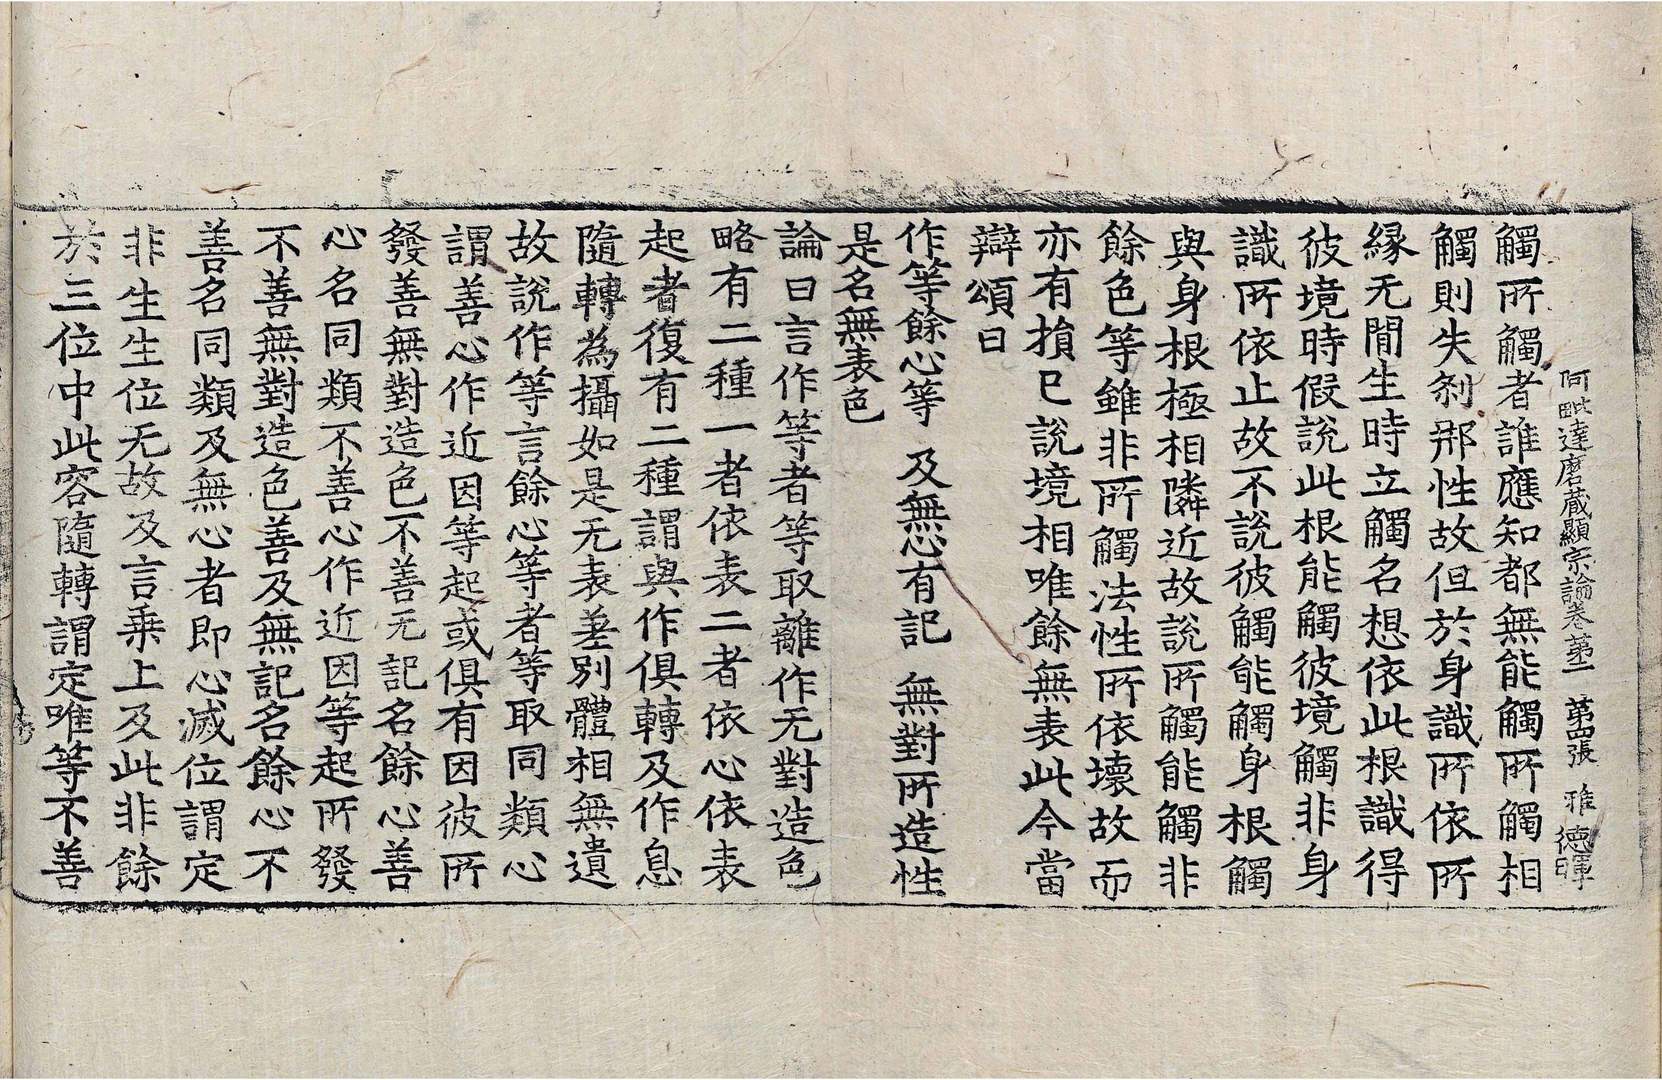 阿毗達磨蔵顯宗論卷第二 第四張 雅 德暉
觸所觸者誰應知都無能觸所觸相
觸則失刹那性故但於身識所依所
縁无間生時立觸名想依此根識得
彼境時假說此根能觸彼境觸非身
識所依止故不說彼觸能觸身根觸
與身根極相隣近故說所觸能觸非
餘色等雖非所觸法性所依壞故而
亦有損已說境相唯餘無表此今當
辯頌曰
作等餘心等 及無心有記 無對所造性
是名無表色
論曰言作等者等取離作无對造色
略有二種一者依表二者依心依表
起者復有二種謂與作俱轉及作息
隨轉為攝如是无表差別體相無遺
故說作等言餘心等者等取同類心
謂善心作近因等起或俱有因彼所
發善無對造色不善无記名餘心善
心名同類不善心作近因等起所發
不善無對造色善及無記名餘心不
善名同類及無心者即心滅位謂定
非生生位无故及言乗上及此非餘
於三位中此容隨轉謂定唯等不善